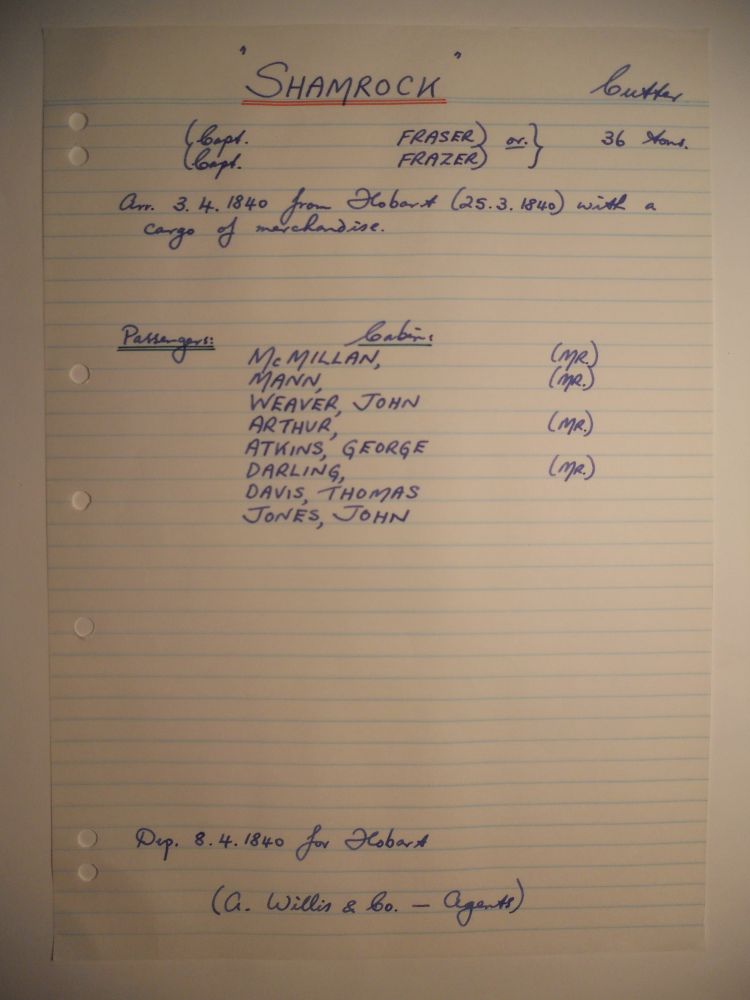 "SHAMROCK" Cutter
(Capt. FRASER) or.} 36 tons.
(Capt. FRAZER)
Arr. 3.4.1840 from Hobart (25.3.1840) with a
cargo of merchandise.
Passengers: Cabin:
McMILLAN, (MR.)
MANN, (MR.)
WEAVER, JOHN
ARTHUR, (MR.)
ATKINS, GEORGE
DARLING, (MR.)
DAVIS, THOMAS
JONES, JOHN
Dep. 8.4.1840 for Hobart
(A. Willis & Co. — Agents)